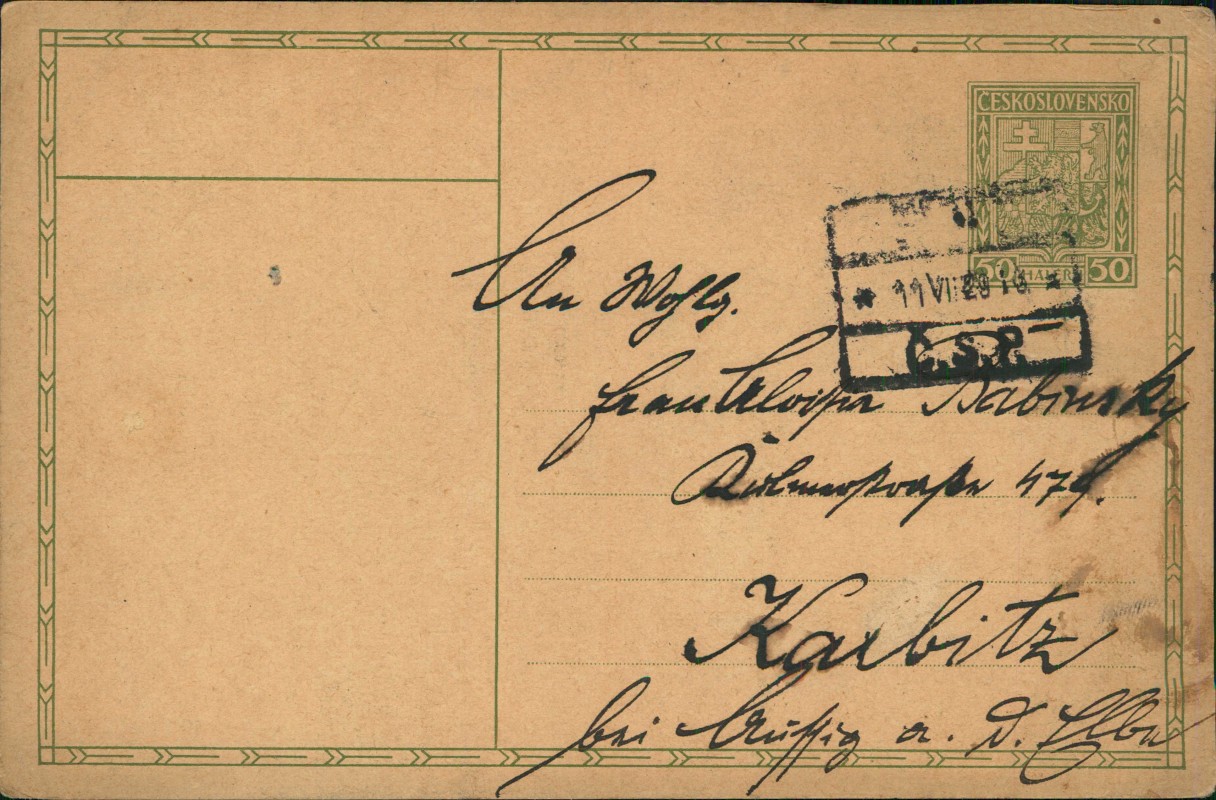 ČESKOSLOVENSKO
50 HALÉŘŮ 50
11 VII 29
Č.S.P.
An Wohlg.
Frau Aloisia Babinsky
Kulmerstraße 479.
Karbitz
bei Aussig a. d. Elbe